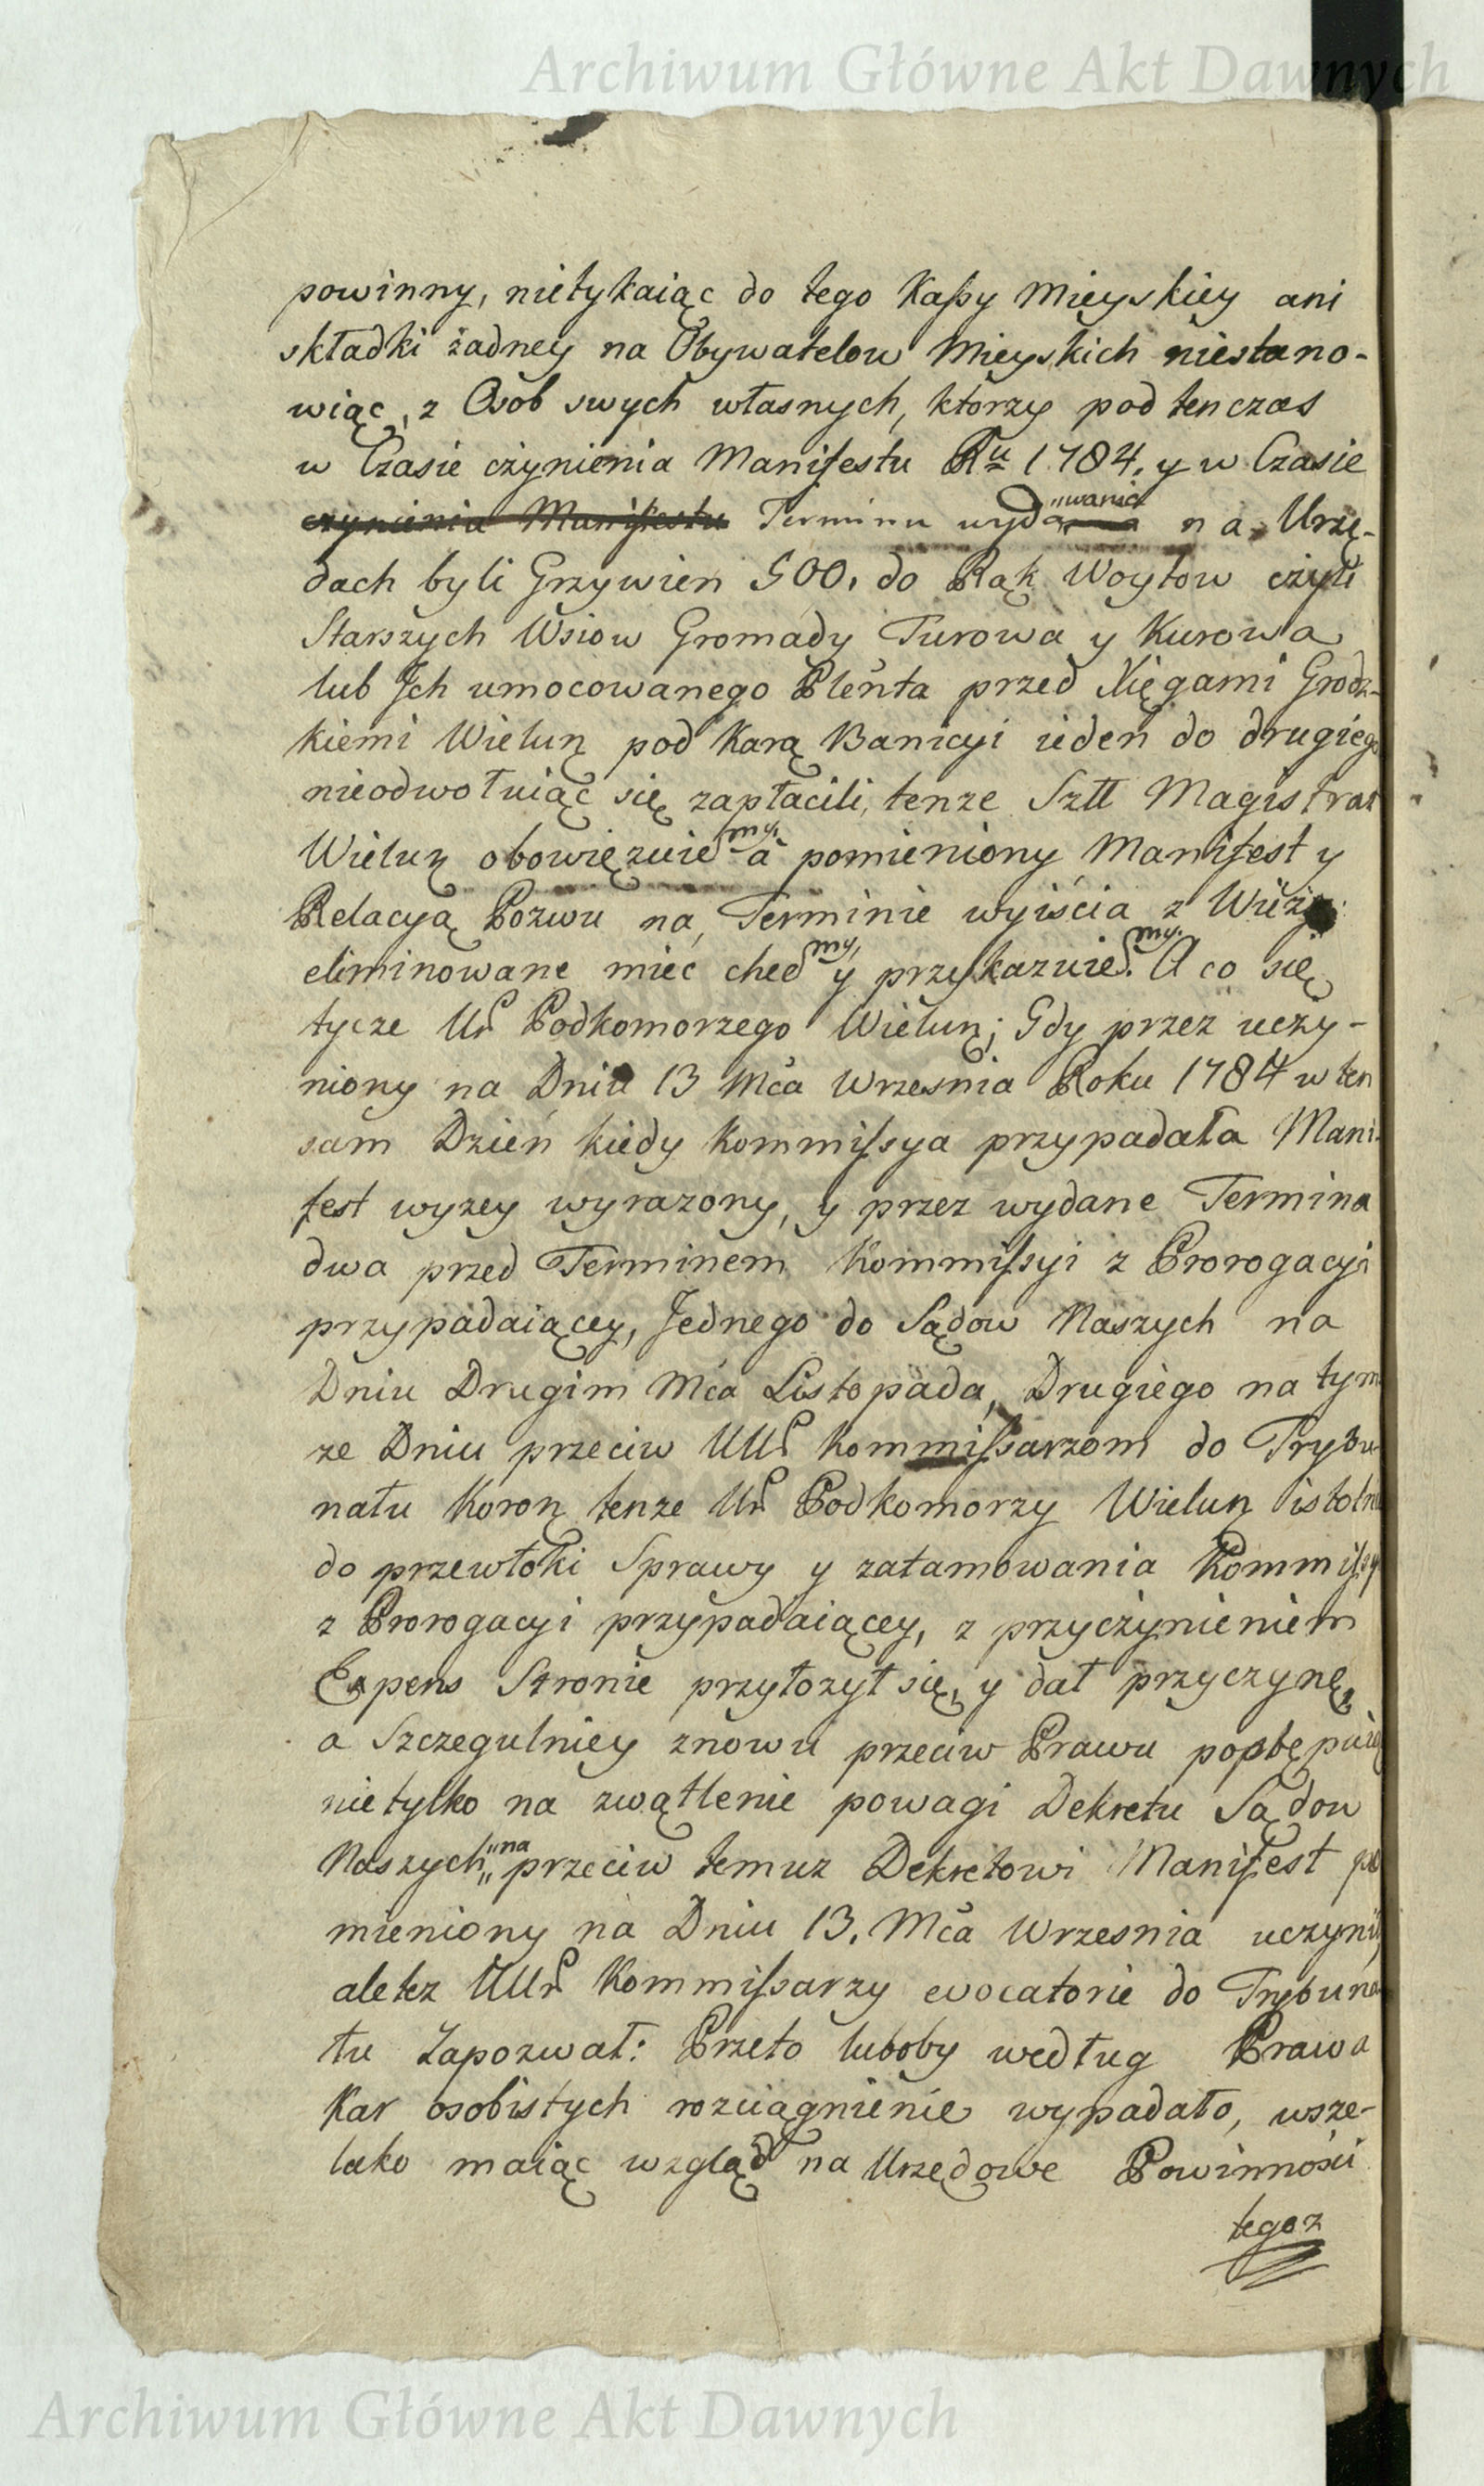 Archiwum Główne Akt Dawnych
powinny, nietykaiąc do tego Kaßy Mieyskiey ani
składki żadney na Obywatelow Mieyskich niestano-
wiąc, z Osob swych własnych, ktorzy pod tenczas
w Czasie czynienia Manifestu Ru 1784. y w Czasie
czynienia Manifestu Terminu wyda"wania na Urzę-
dach byli Grzywien 500. do Rąk Woytow czyli
Starszych Wsiow Gromady Turowa y Kurowa
lub Jch umocowanego Plenta przed Xięgami Grodz-
kiemi Wielun pod Karą Banicyi ieden do drugiego
nieodwołuiąc się zapłacili, tenze Sztt Magistrat
Wielun obowięzuiemy, a pomieniony Manifest y
Relacyą Pozwu na Terminie wyiścia z Wieży
eliminowane mieć chcemy, y przykazuiemy. A co się
tycze Ur Podkomorzego Wielun; Gdy przez uczy-
niony na Dniu 13 Mca Wrzesnia Roku 1784 w ten
sam Dzień kiedy Kommissya przypadała Mani-
fest wyzey wyrazony, y przez wydane Termina
dwa przed Terminem Kommissyi z Prorogacyi
przypadaiącey, Jednego do Sądow Naszych na
Dniu Drugim Mca Listopada, Drugiego na tym
ze Dniu przeciw UUr Kommissarzom do Trybu-
nału Koron tenze Ur Podkomorzy Wielun istotn
do przewłoki Sprawy y zatamowania Kommissy
z Prorogacyi przypadaiącey, z przyczynieniem
Expens Stronie przyłozył się, y dał przyczynę,
a Szczegulniey znowu przeciw Prawu postępuią
nietylko na zwątlenie powagi Dekretu Sądow
Naszych "na przeciw temuz Dekretowi Manifest po
mieniony na Dniu 13. Mca Wrzesnia uczynił
aletez UUr Kommissarzy evocatorie do Trybuna
łu Zapozwał: Przeto luboby według Prawa
Kar osobistych rozciągnienie wypadało, wsze-
lako maiąc wzgląd na Urzędowe Powinności
tegoz
Archiwum Główne Akt Dawnych